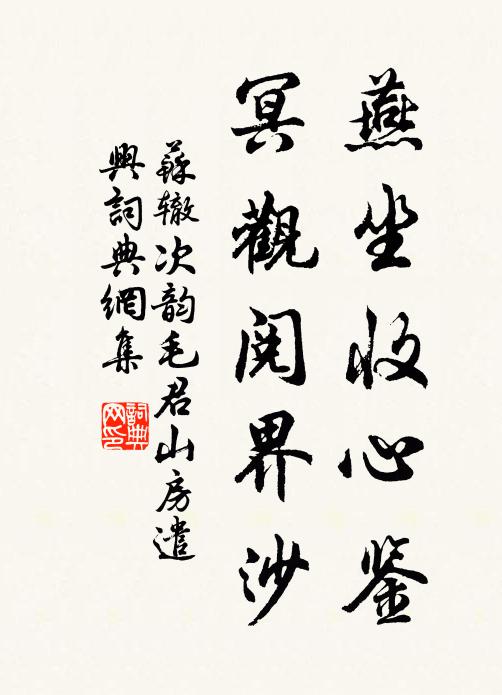 燕坐收心鉴
冥觀閱界沙
蘇辙次韵毛君山房遣
興詞典網集
詞典网印